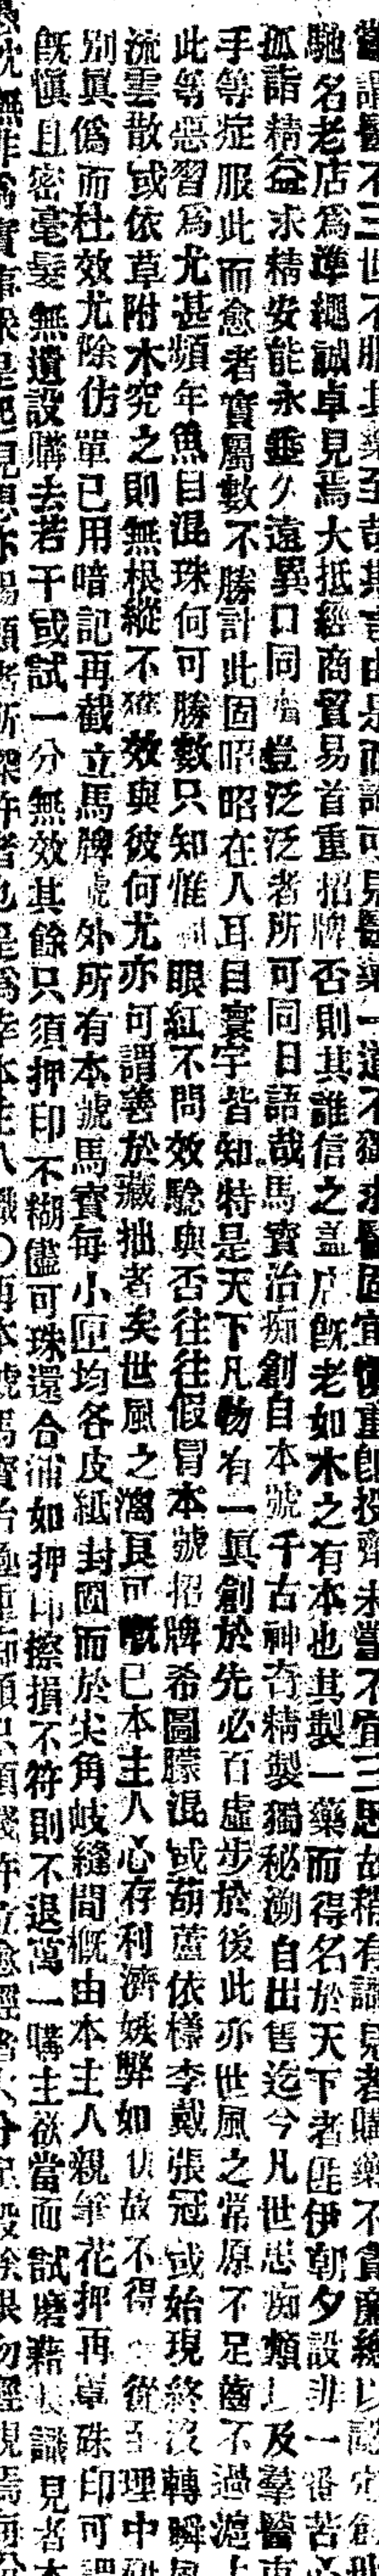 嘗謂醫不三世不服其藥至哉斯言由是而論可見醫藥一道不獨求醫固宜慎重即投劑未嘗不宜三思故稍有識見者購藥不貪廉總以認定創
馳名老店爲準繩誠卓見焉大抵經商貿易首重招牌否則其誰信之蓋店既老如木之有本也其製一藥而得名於天下者匪伊朝夕設非一番苦心
孤詣精益求精安能永垂久遠異口同豈泛泛者所可同日語哉馬寶治痴創自本號千古神奇精製獨秘溯自出售迄今凡世患痴癲以及羣醫束
手等症服此而愈者實屬數不勝計此固昭昭在人耳目寰宇皆知特是天下凡物有一眞創於先必百虛步於後此亦世風之常原不足齒不過滬上
此等惡習爲尤甚頻年魚目混珠何可勝數只知惟眼紅不問效驗與否往往假冒本號招牌希圖朦混或葫蘆依樣李戴張冠或始現終沒轉瞬風
流雲散或依草附木究之則無根縱不獲效與彼何尤亦可謂善於藏拙者矣世風之澆良可嘅已本主人心存利濟嫉弊如仇故不得從至理中
別眞僞而杜效尤除仿單已用暗記再截立馬牌號外所有本號馬寶每小匣均各皮紙封固而於尖角岐縫間槪由本主人親筆花押再葢硃印可謂
旣愼且密毫髮無遺設購去若干或試一分無效其餘只須押印不糊儘可珠還合浦如押印擦損不符則不退萬一購主欲當面試磨藉長識見者本
無非爲實事是見患亦馬顛者所架許者也是爲幸本主人識〇再本號馬寶治極重痴顛只須錢許立愈輕者八分足設餘